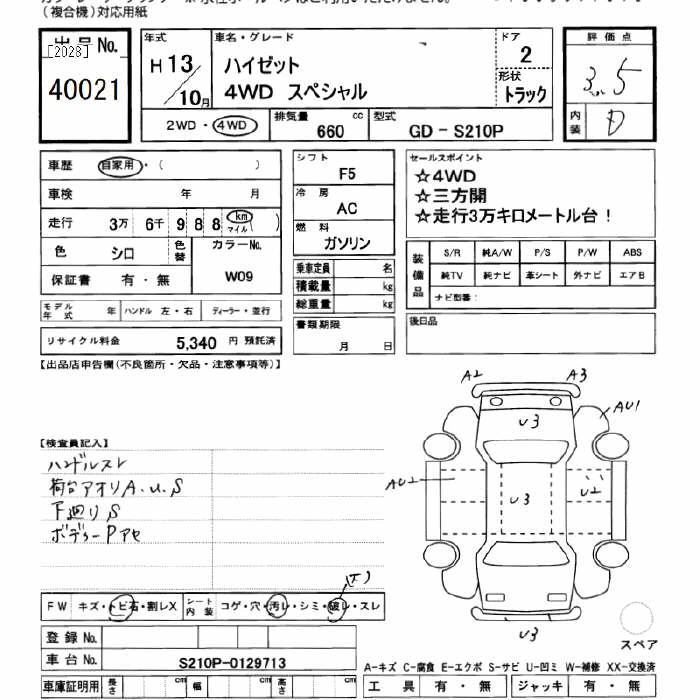 （複合機）対応用紙
出品No.
[2028]
40021
年式
H 13/10月
車名・グレード
ハイゼット
4WD スペシャル
ドア
2
形状
トラック
2WD・4WD
排気量 660 cc
型式 GD－S210P
評価点
3.5
内装
D
車歴 自家用・（ ）
車検 年 月
走行 3万 6千 9 8 8 km マイル（ ）
色 シロ
色替
カラーNo.
W09
保証書 有・無
モデル年式 年 ハンドル 左・右 ディーラー・並行
リサイクル料金 5,340 円 預託済
シフト
F5
冷房
AC
燃料
ガソリン
乗車定員 名
積載量 kg
総重量 kg
書類期限
月 日
セールスポイント
☆4WD
☆三方開
☆走行3万キロメートル台！
装備品
S/R 純A/W P/S P/W ABS
純TV 純ナビ 革シート 外ナビ エアB
ナビ型番：
後日品
【出品店申告欄（不良箇所・欠品・注意事項等）】
【検査員記入】
ハンドルスレ
荷台アオリA.U.S
下廻りS
ボディーPアセ
A2
A3
AU1
U3
AU2
U3
U2
U3
FW キズ・トビ石・割レX
シート内装 コゲ・穴・汚レ・シミ・破レ・スレ
登録No.
車台No. S210P-0129713
車庫証明用 長さ cm 幅 cm 高さ cm
スペア
A-キズ C-腐食 E-エクボ S-サビ U-凹ミ W-補修 XX-交換済
工具 有・無 ジャッキ 有・無